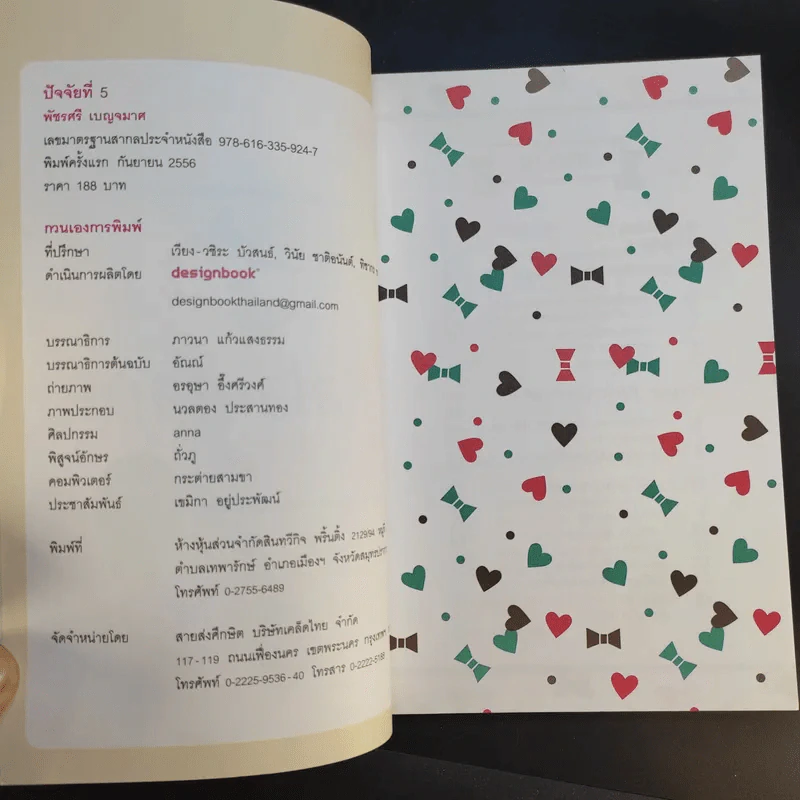 ปัจจัยที่ 5
พัชรศรี เบญจมาศ
เลขมาตรฐานสากลประจำหนังสือ 978-616-335-924-7
พิมพ์ครั้งแรก กันยายน 2556
ราคา 188 บาท
กวนเองการพิมพ์
ที่ปรึกษา เวียง-วชิระ บัวสนธ์, วินัย ชาติอนันต์,
ดำเนินการผลิตโดย designbook
designbookthailand@gmail.com
บรรณาธิการ ภาวนา แก้วแสงธรรม
บรรณาธิการต้นฉบับ อัณณ์
ถ่ายภาพ อรอุษา อึ๊งศรีวงศ์
ภาพประกอบ นวลตอง ประสานทอง
ศิลปกรรม anna
พิสูจน์อักษร ถั่วภู
คอมพิวเตอร์ กระต่ายสามขา
ประชาสัมพันธ์ เขมิกา อยู่ประพัฒน์
พิมพ์ที่ ห้างหุ้นส่วนจำกัดสินทวีกิจ พริ้นติ้ง 2129/94
ตำบลเทพารักษ์ อำเภอเมืองฯ
โทรศัพท์ 0-2755-6489
จัดจำหน่ายโดย สายส่งศึกษิต บริษัทเคล็ดไทย จำกัด
117-119 ถนนเฟื่องนคร เขตพระนคร
โทรศัพท์ 0-2225-9536-40 โทรสาร 0-2222-5188